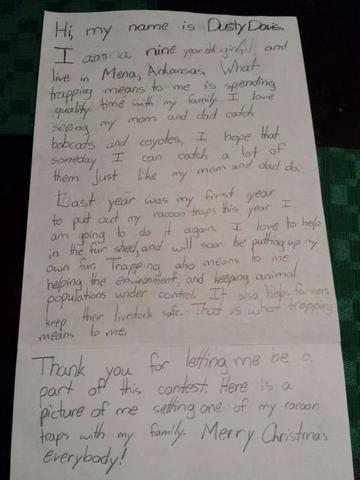 Hi, my name is Dusty Davis.
I am a nine year old girl, and
live in Mena, Arkansas. What
trapping means to me is spending
quality time with my family. I love
seeing my mom and dad catch
bobcats and coyotes, I hope that
someday I can catch a lot of
them just like my mom and dad do.
Last year was my first year
to put out my racoon traps this year I
am going to do it again. I love to help
in the fur shed, and will soon be putting up my
own fur. Trapping also means to me
helping the environment, and keeping animal
populations under control. It also helps farmers
keep their livestock safe. That is what trapping
means to me.
Thank you for letting me be a
part of this contest. Here is a
picture of me setting one of my racoon
traps with my family. Merry Christmas
everybody!